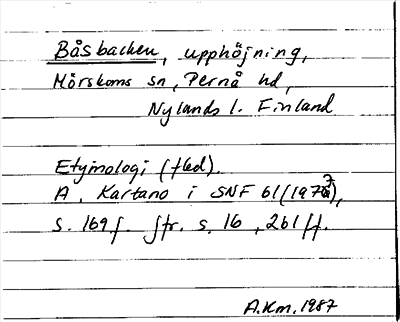 Båsbacken, upphöjning,
Mörskoms sn, Pernå hd,
Nylands l. Finland
Etymologi (fled).
A. Kartano i SNF 61 (1972),
s. 169 f. Jfr. s. 16, 261 ff.
A.Km. 1987